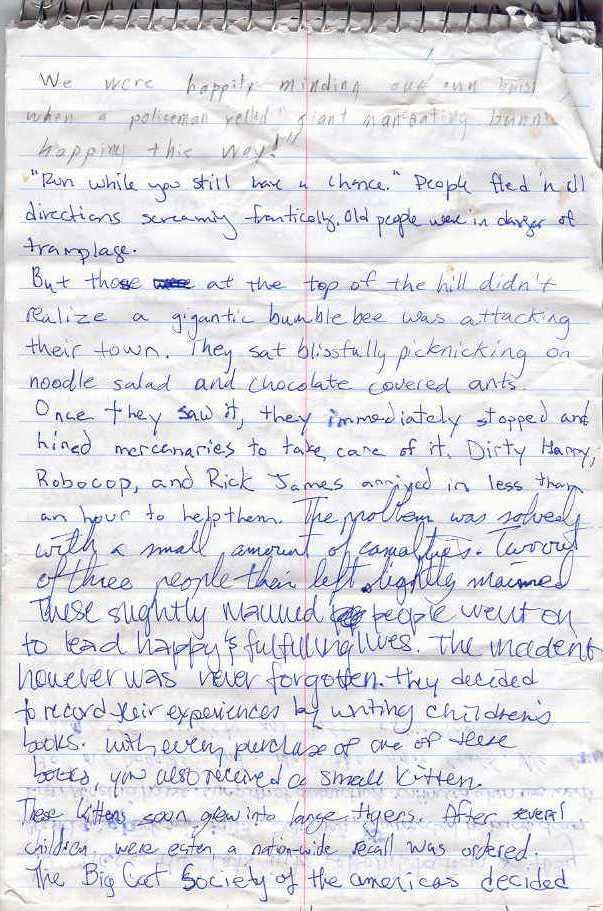 We were happily minding our own busi
when a policeman yelled "giant man eating bunn
hopping this way!"
"Run while you still have a chance." People fled in all
directions screaming frantically. Old people were in danger of
tramplage.
But those at the top of the hill didn't
realize a gigantic bumble bee was attacking
their town. They sat blissfully picknicking on
noodle salad and chocolate covered ants.
Once they saw it, they immediately stopped and
hired mercenaries to take care of it. Dirty Harry,
Robocop, and Rick James arrived in less than
an hour to help them. The problem was solved
with a small amount of casualties. Two out
of three people then left slightly maimed
These slightly maimed people went on
to lead happy & fulfulling lives. The incident
however was never forgotten. They decided
to record their experiences by writing children's
books. With every purchase of one of these
books, you also received a small kitten.
These kittens soon grew into large tigers. After several
children were eaten a nation-wide recall was ordered.
The Big Cat Society of the americas decided